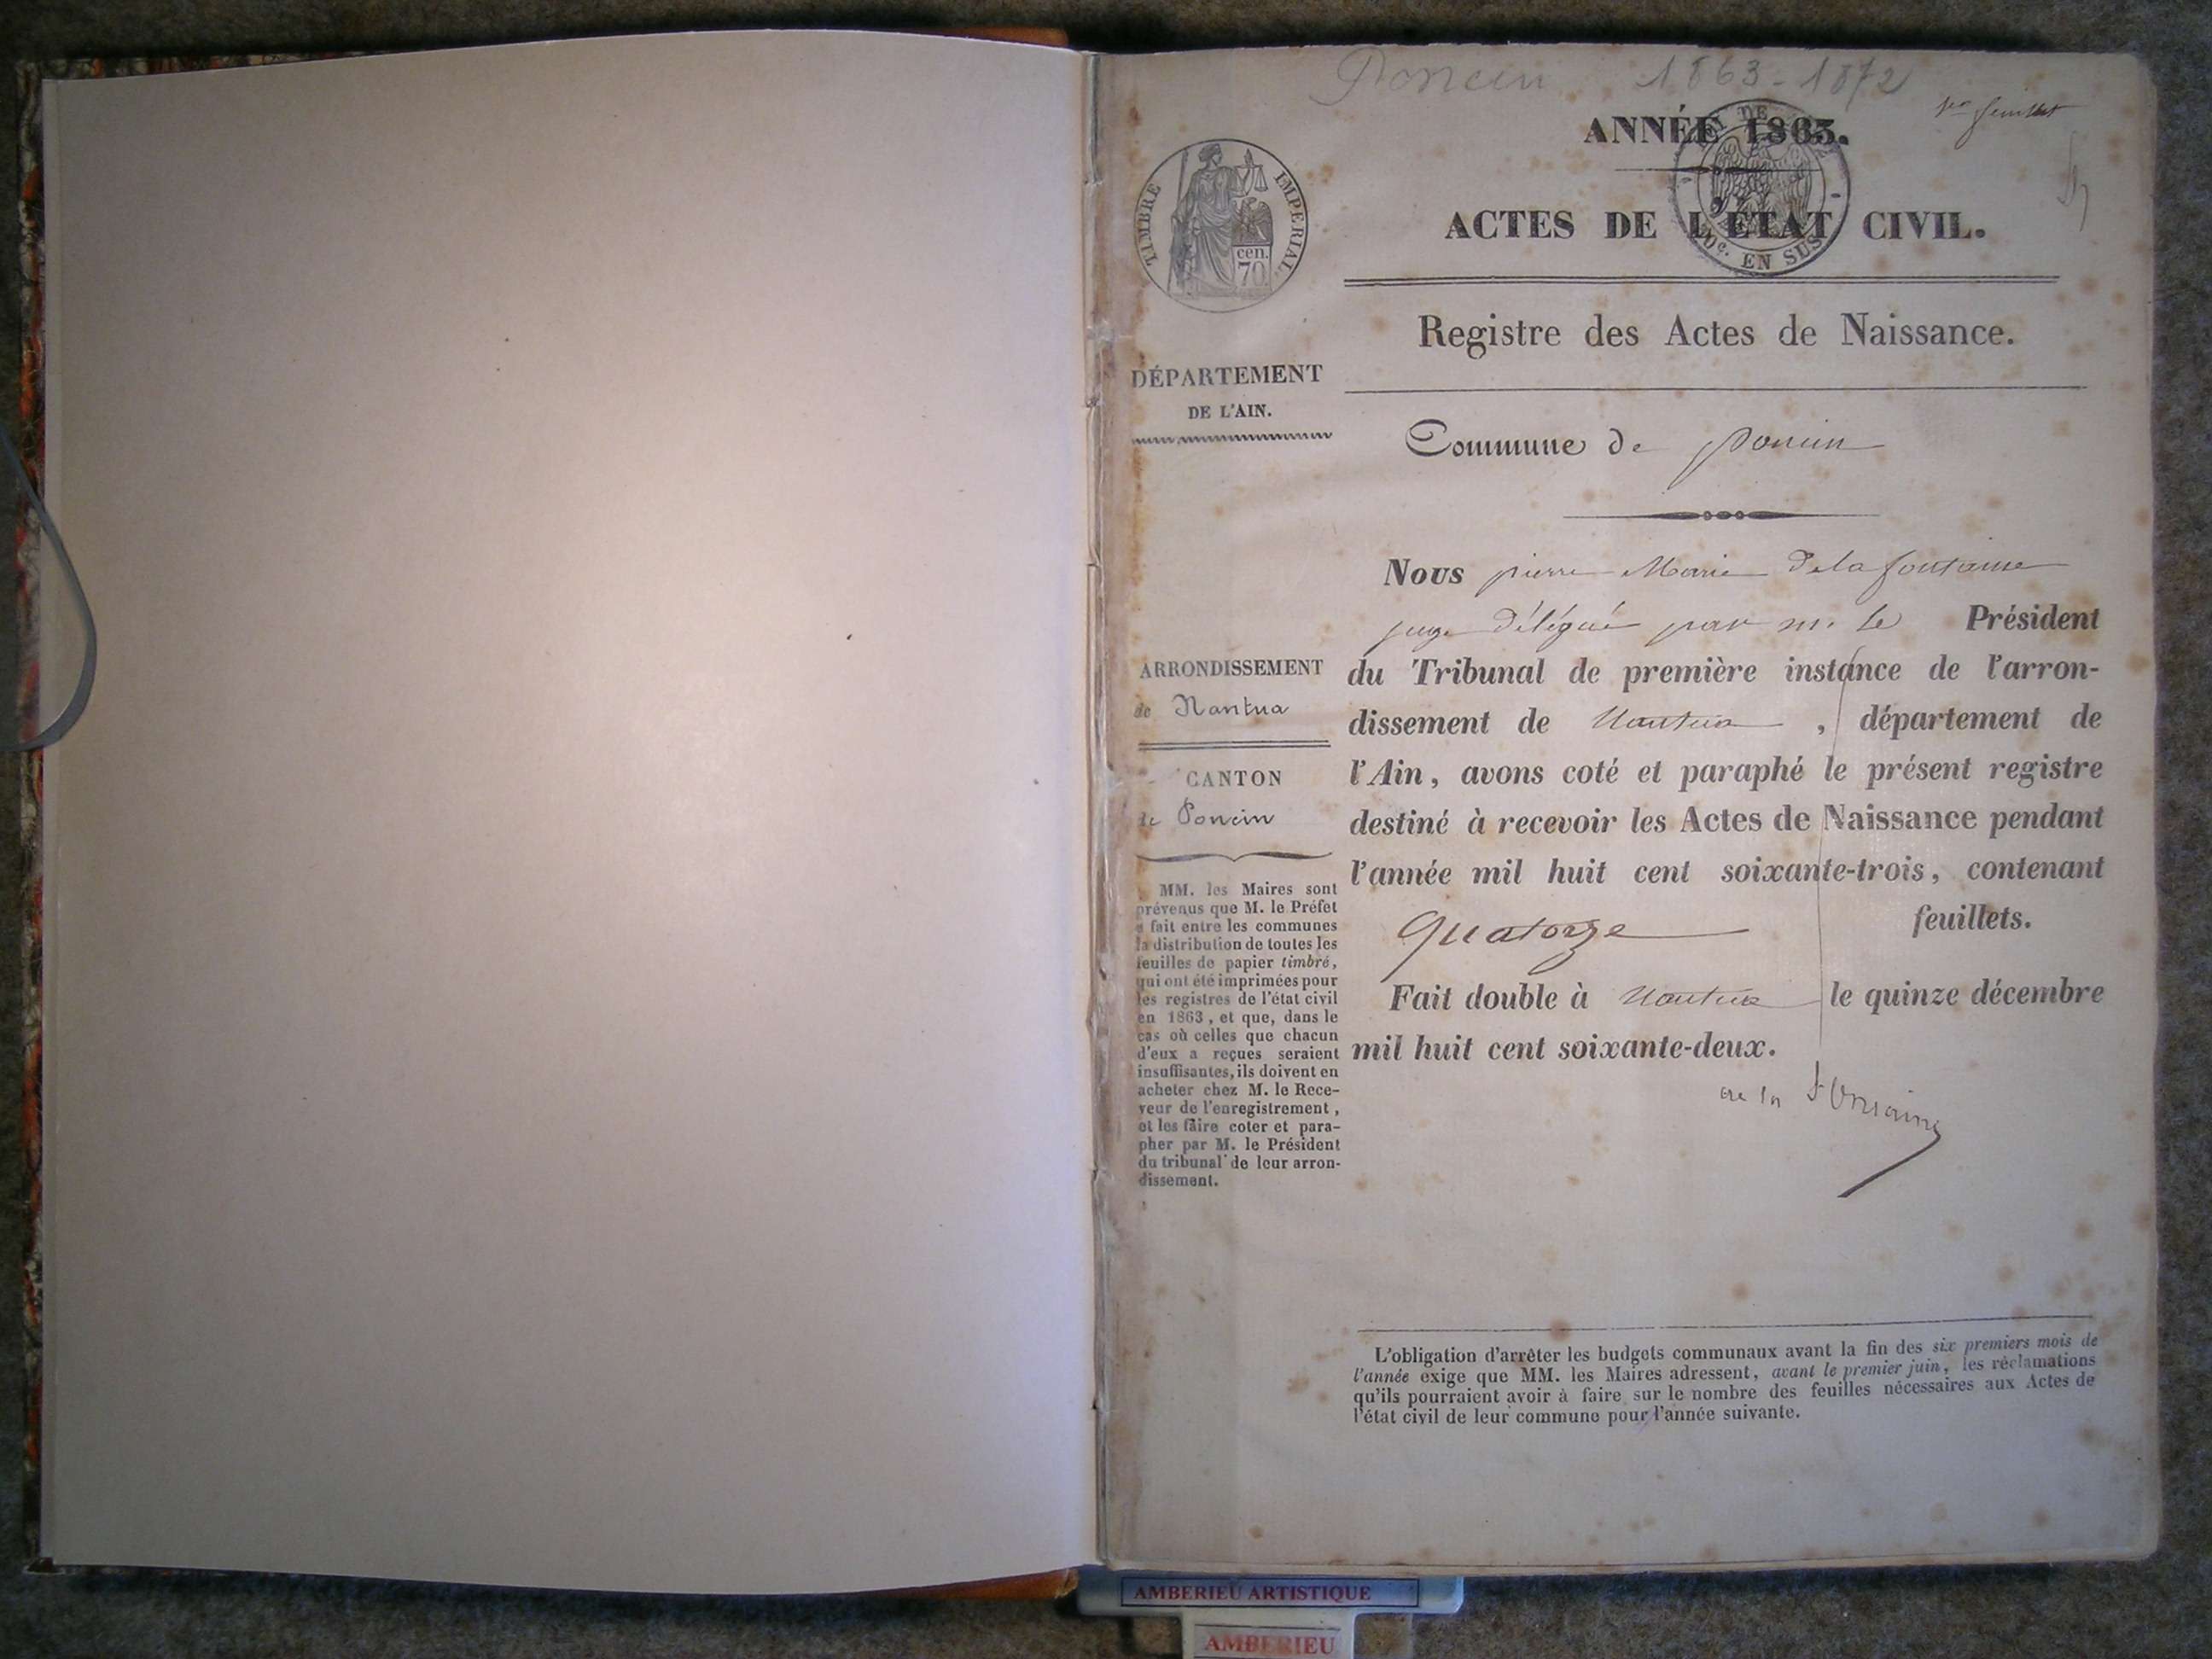 Poncin 1863-1872
1er feuillet
ANNÉE 1863.
ACTES DE L'ÉTAT CIVIL.
TIMBRE IMPERIAL
cen.
70
EN SUS
Registre des Actes de Naissance.
DÉPARTEMENT
DE L'AIN.
Commune de poncin
Nous pierre Marie Delafontaine
juge délégué par m. le Président
du Tribunal de première instance de l'arron-
dissement de Nantua, département de
l'Ain, avons coté et paraphé le présent registre
destiné à recevoir les Actes de Naissance pendant
l'année mil huit cent soixante-trois, contenant
quatorze feuillets.
Fait double à Nantua le quinze décembre
mil huit cent soixante-deux.
de la fontaine
ARRONDISSEMENT
de Nantua
CANTON
de Poncin
MM. les Maires sont
prévenus que M. le Préfet
a fait entre les communes
la distribution de toutes les
feuilles de papier timbré,
qui ont été imprimées pour
les registres de l'état civil
en 1863, et que, dans le
cas où celles que chacun
d'eux a reçues seraient
insuffisantes, ils doivent en
acheter chez M. le Rece-
veur de l'enregistrement,
et les faire coter et para-
pher par M. le Président
du tribunal de leur arron-
dissement.
L'obligation d'arrêter les budgets communaux avant la fin des six premiers mois de
l'année exige que MM. les Maires adressent, avant le premier juin, les réclamations
qu'ils pourraient avoir à faire sur le nombre des feuilles nécessaires aux Actes de
l'état civil de leur commune pour l'année suivante.
AMBERIEU ARTISTIQUE
AMBERIEU